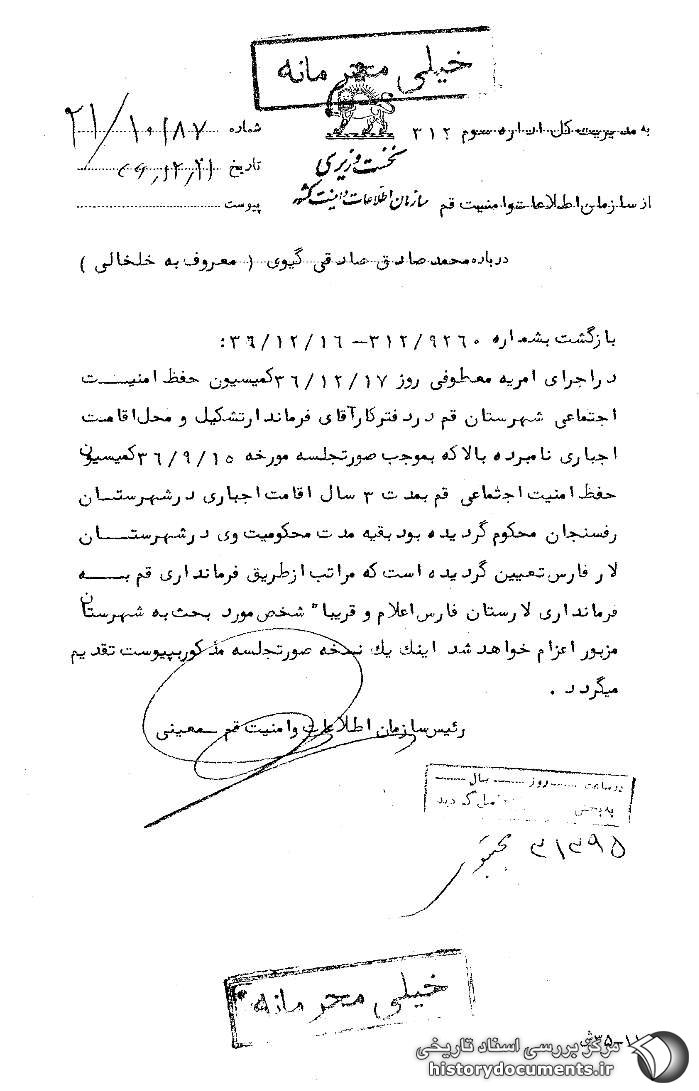 خیلی محرمانه
به مدیریت کل اداره سوم ۳۱۲
شماره ۲۱/۱۰۱۸۷
نخست وزیری
تاریخ
از سازمان اطلاعات و امنیت قم
سازمان اطلاعات و امنیت کشور
پیوست
درباره محمد صادق صادقی گیوی ( معروف به خلخالی )
بازگشت بشماره ۳۱۲/۹۲۶۰ – ۳۶/۱۲/۱۶ :
در اجرای امریه معطوفی روز ۳۶/۱۲/۱۷ کمیسیون حفظ امنیت
اجتماعی شهرستان قم در دفتر کار آقای فرماندار تشکیل و محل اقامت
اجباری نامبرده بالا که بموجب صورتجلسه مورخه ۳۶/۹/۱۵ کمیسیون
حفظ امنیت اجتماعی قم بمدت ۳ سال اقامت اجباری در شهرستان
رفسنجان محکوم گردیده بود بقیه مدت محکومیت وی در شهرستان
لار فارس تعیین گردیده است که مراتب از طریق فرمانداری قم به
فرمانداری لارستان فارس اعلام و قریبا" شخص مورد بحث به شهرستان
مزبور اعزام خواهد شد اینك یك نسخه صورتجلسه مذکور بپیوست تقدیم
میگردد .
رئیس سازمان اطلاعات و امنیت قم – معینی
در ساعت روز سال
به بخش
۳۱۳۹۵
خیلی محرمانه
۳۵-۱۱
مرکز بررسی اسناد تاریخی
historydocuments.ir